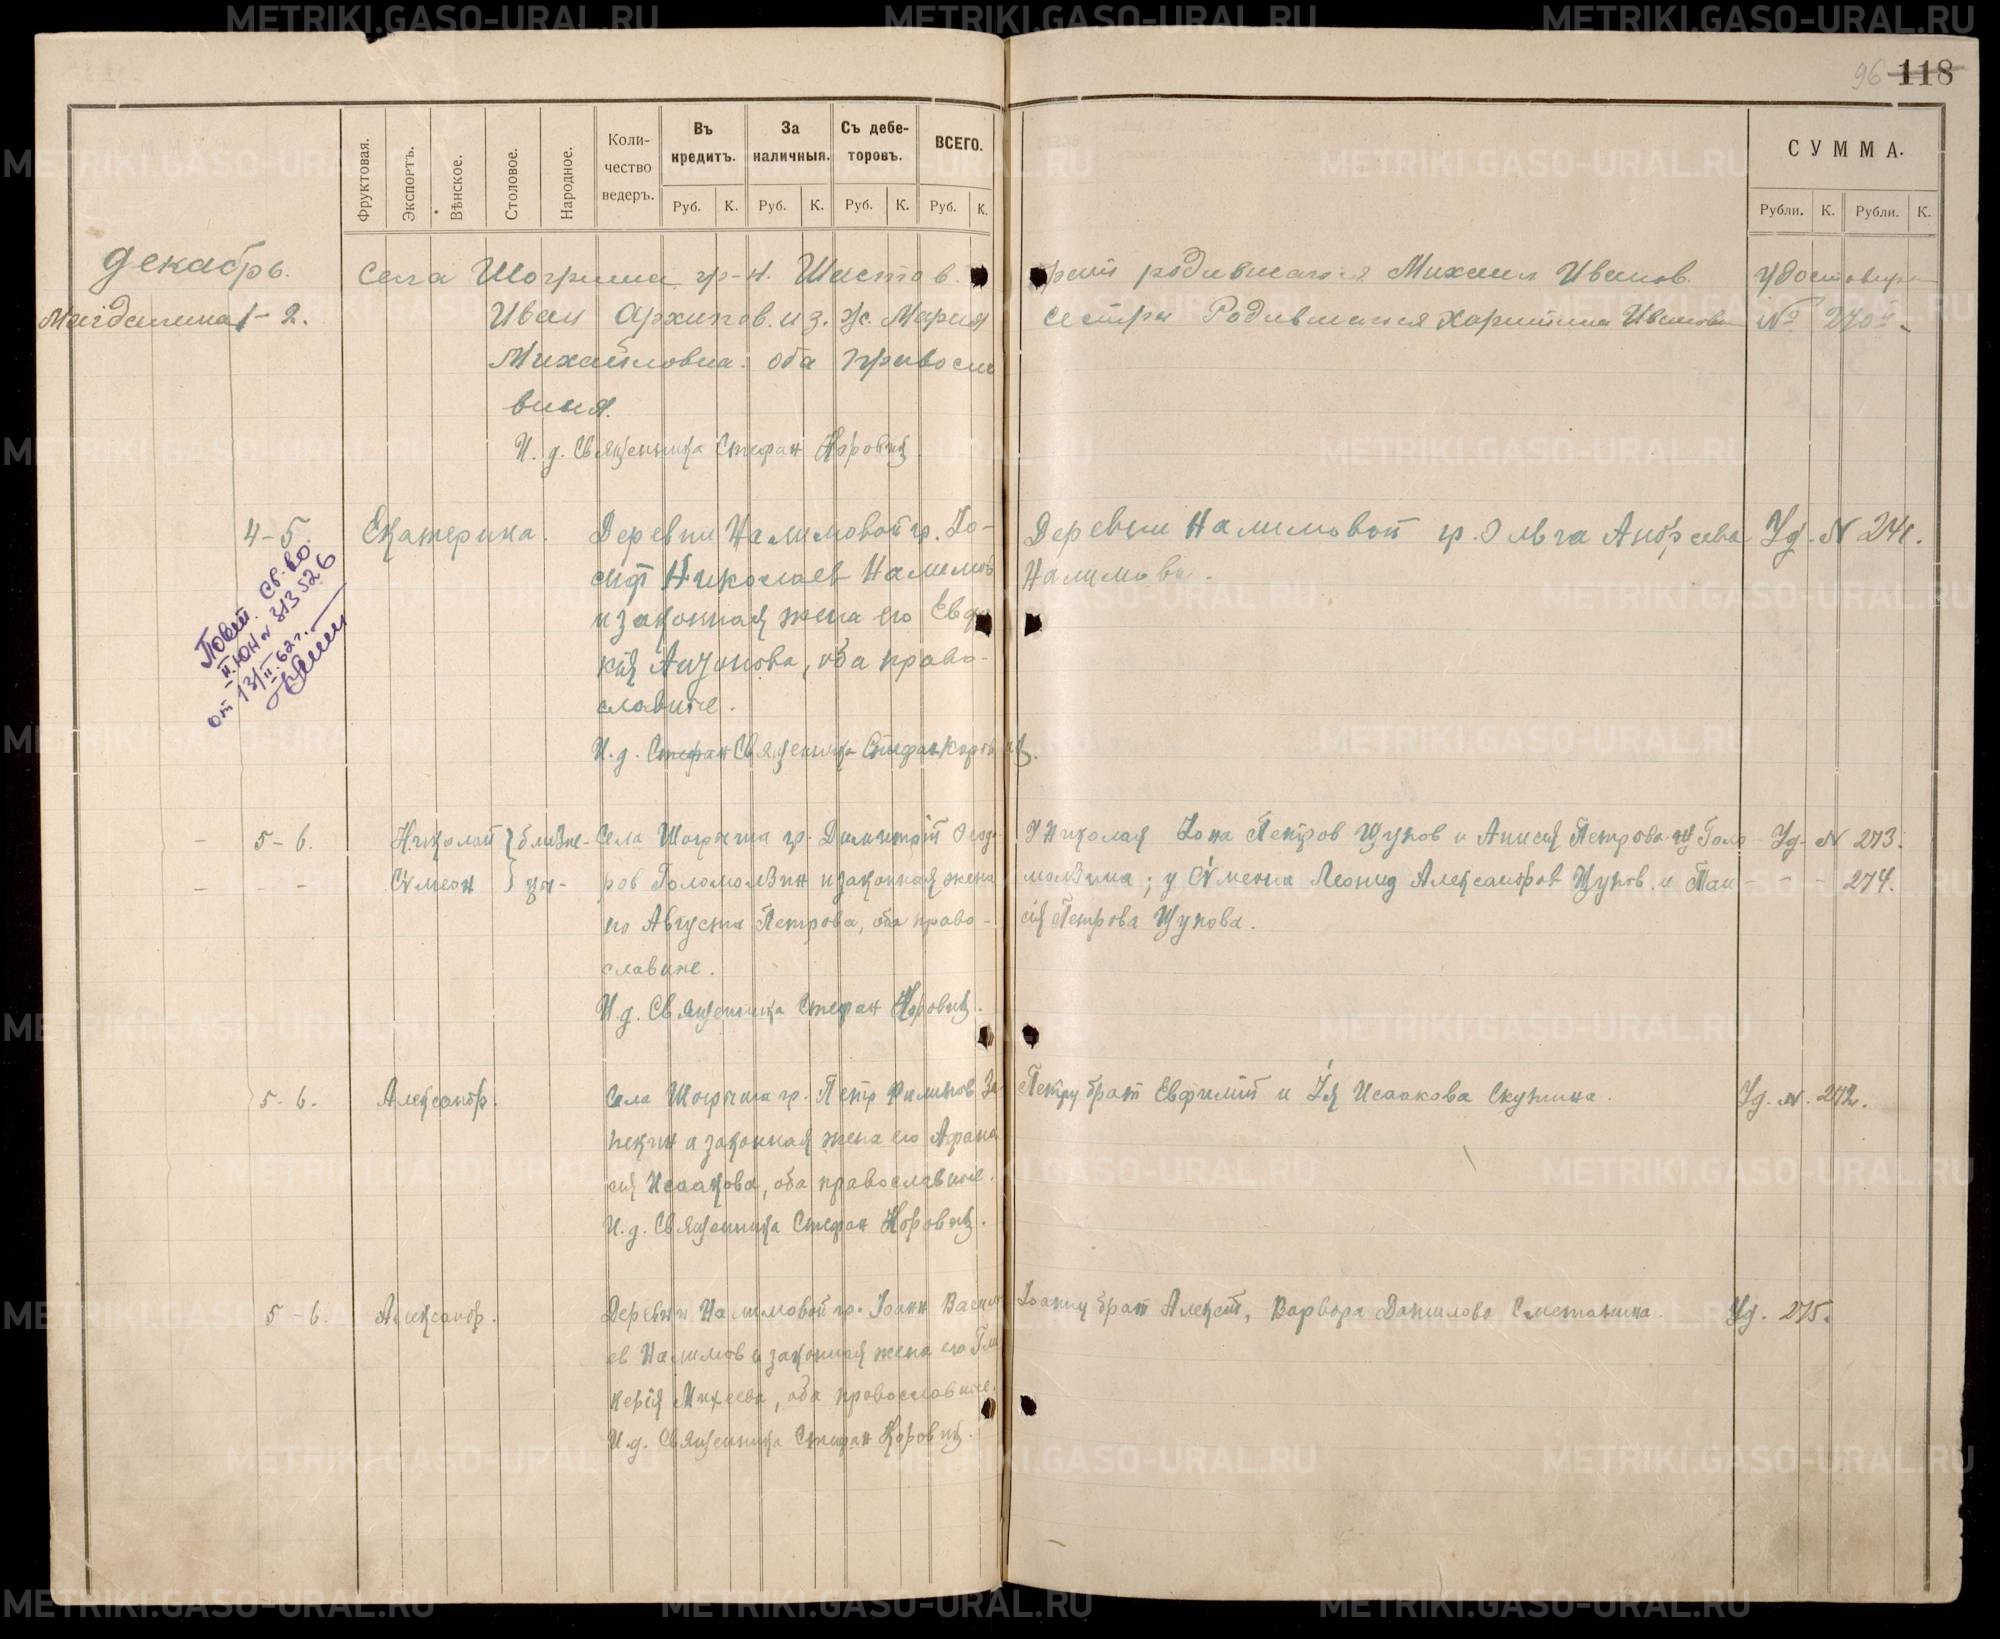 96 118
Фруктовая. Экспортъ. Вѣнское. Столовое. Народное. Коли-чество ведеръ. Въ кредитъ. За наличныя. Съ дебе-торовъ. ВСЕГО.
Руб. К. Руб. К. Руб. К. Руб. К.
СУММА.
Рубли. К. Рубли. К.
декабрь.
1-2.
села Шогриша гр-н. Шистов.
Иван Архипов. и з. ж. Мария
Михайловна. оба правосла
вная.
И. д. Священника Стефан Коровин
брат родившагося Михаил Иванов.
сестра Родившагося Харитина Иванова
№ 270
4-5. Екатерина.
Деревни Налимовой гр. Іо-
сиф Николаев Налимов
и законная жена его Евдо
кія оба право-
славные.
И. д. Стефан Священника Стефан Коровин.
Деревни Налимовой гр. Ольга Андреева
Налимова.
Уд. N 271.
Повт. Св. во.
II-ЮН N 313526
от 13/II-62 г.
5-6. Николай } близне-
Сѵмеон } цы-
Села Шогриша гр. Димитрій
ров Голомолзин и законная жена
его Августа Петрова, оба право-
славные.
И. д. Священника Стефан Коровин.
У Николая Іона Петров Щупов и Анисія Петрова Голо
молзина; у Сѵмеона Леонид Александров Щупов и Таи
сія Петрова Щупова.
Уд. N 273.
- - - 274.
5-6. Александр.
Села Шогриша гр. Петр Филипов
и законная жена его Афана
сія Исаакова, оба православные.
И. д. Священника Стефан Коровин.
Петру брат Евфимій и Ія Исаакова Скупина.
Уд. N. 272.
5-6. Александр.
Деревни Налимовой гр. Іоанн Василь
ев Налимов и законная жена его Гли
керія Михеева, оба православные.
И. д. Священника Стефан Коровин.
Іоанну брат Алексей, Варвара Данилова Сметанина.
Уд. 275.
METRIKI.GASO-URAL.RU